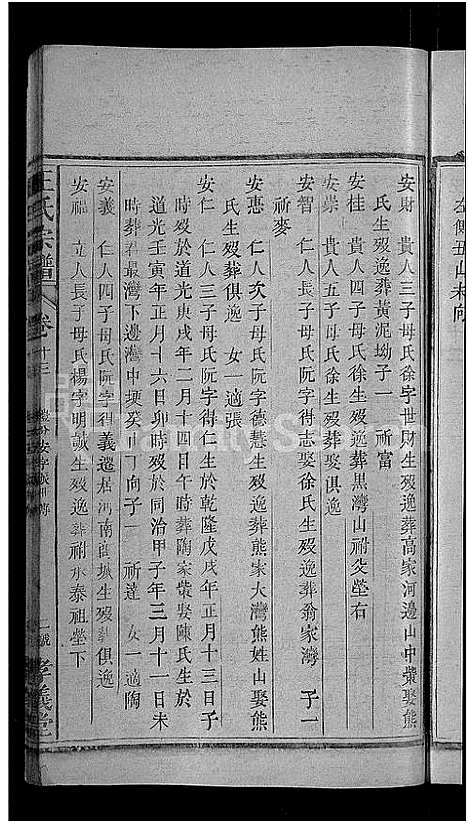 左傍丑山未向
安財 貴人三子母氏徐字世財生歿逸葬高家河邊山中塋娶熊
氏生歿逸葬黃泥坳子一 祈富
安桂 貴人四子母氏徐生歿逸葬黑灣山祔父塋右
安崇 貴人五子母氏徐生歿葬娶俱逸
安智 仁人長子母氏阮字得志娶徐氏生歿逸葬翁家灣 子一
祈麥
安惠 仁人次子母氏阮字德慧生歿逸葬熊家大灣熊姓山娶熊
氏生歿葬俱逸 女一適張
安仁 仁人三子母氏阮字得仁生於乾隆戊戌年正月十三日子
時歿於道光庚戌年二月十四日午時葬陶家塋娶陳氏生於
道光壬寅年正月十六日卯時歿於同治甲子年三月十一日未
時葬君最灣下邊灣中壙癸山丁向子一 祈達 女一適陶
安義 仁人四子母氏阮字得義遷居河南商城生歿葬俱逸
安福 立人長子母氏楊字明誠生歿逸葬祔永泰祖塋下
王氏宗譜 卷十三 孝義堂